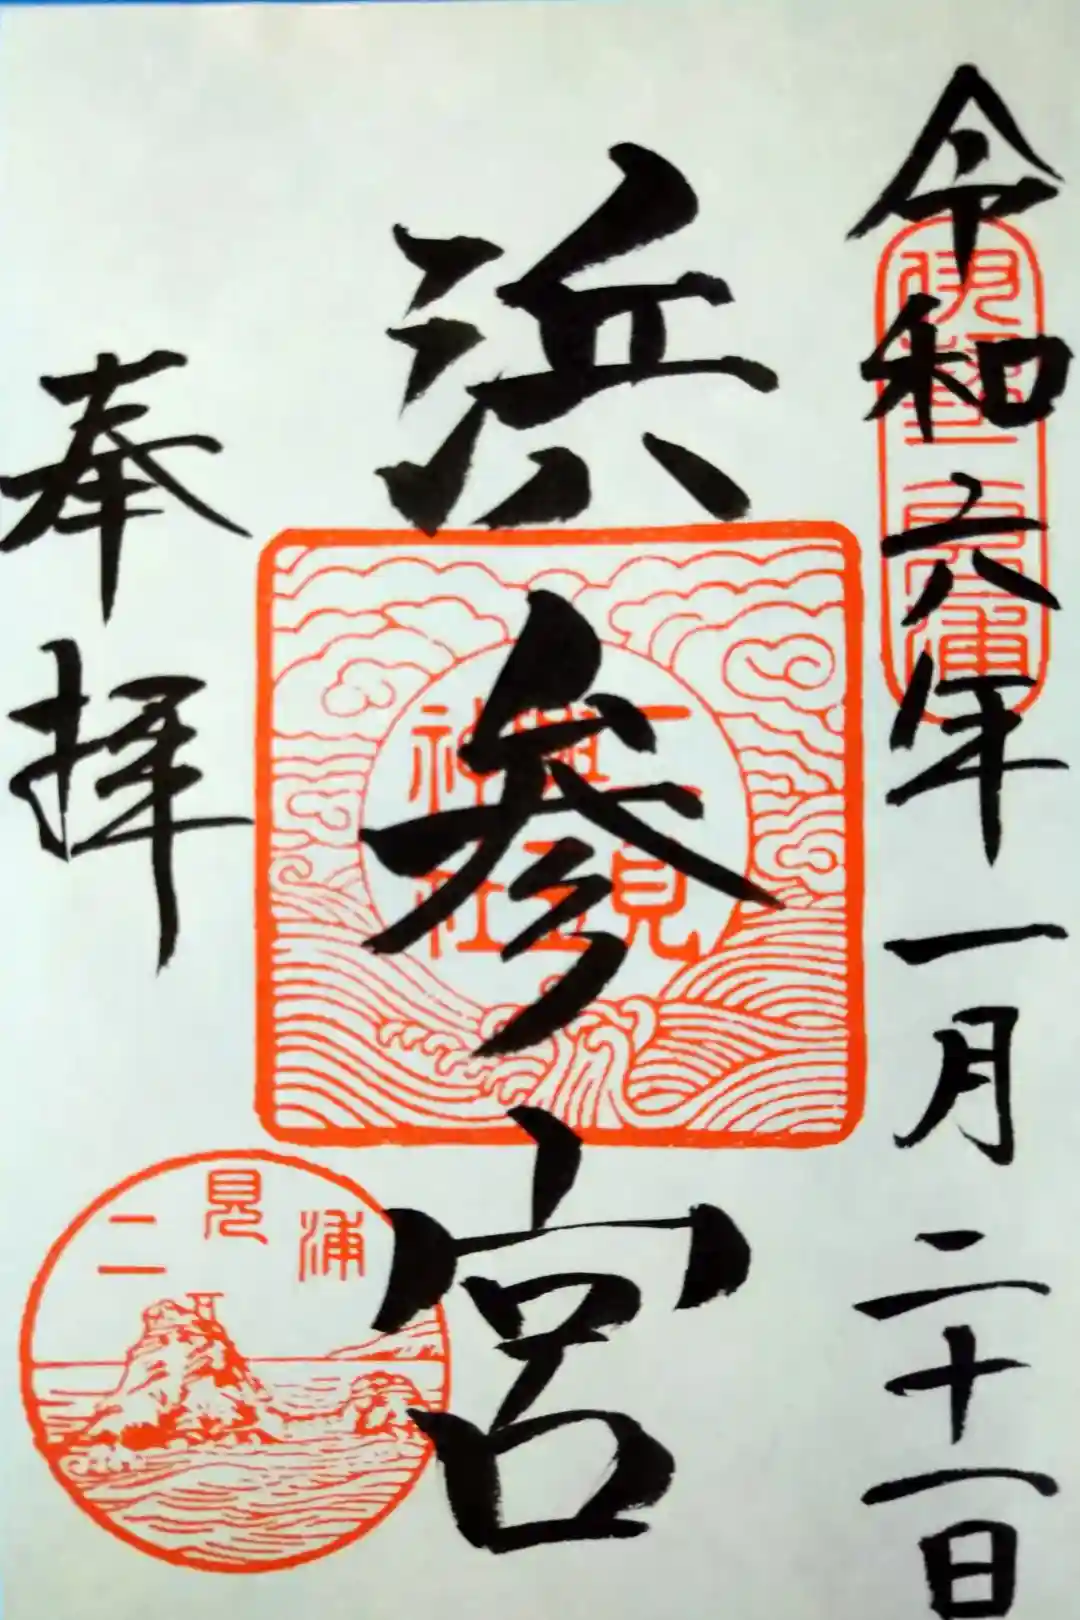 令和六年一月二十一日
伊勢二見浦
浜参宮
二見興玉神社
奉拝
二見浦